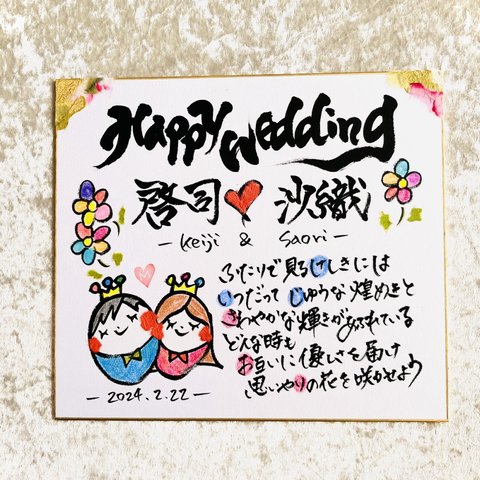 Happy Wedding
啓司♥沙織
- Keiji & Saori -
ふたりで見るけしきには
いつだって じゆうな煌めきと
さわやかな輝きがあふれている
どんな時も
お互いに優しさを届け
思いやりの花を咲かせよう
- 2024.2.22 -